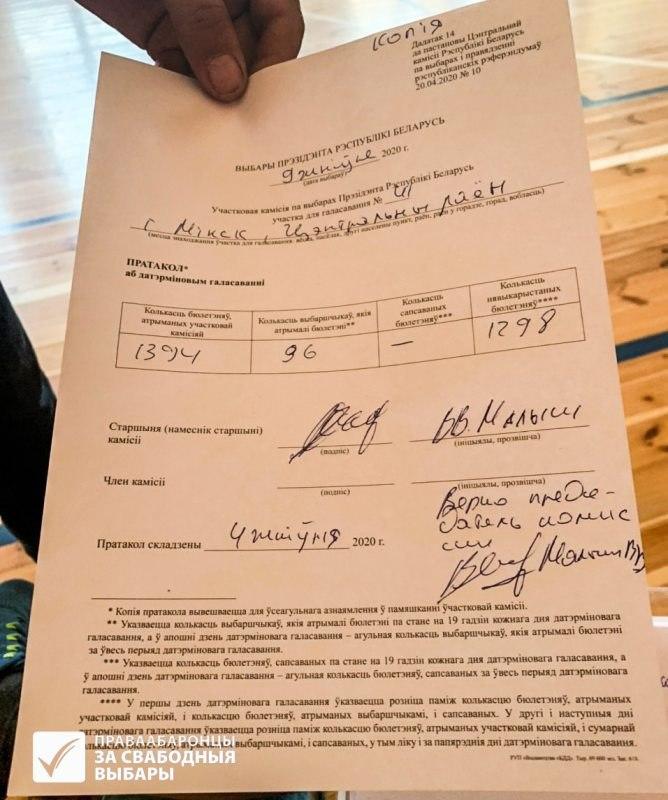 копія
Дадатак 14
да пастановы Цэнтральнай
камісіі Рэспублікі Беларусь
па выбарах і правядзенні
рэспубліканскіх рэферэндумаў
20.04.2020 № 10
ВЫБАРЫ ПРЭЗІДЭНТА РЭСПУБЛІКІ БЕЛАРУСЬ
9 жніўня 2020 г.
(дата выбараў)
Участковая камісія па выбарах Прэзідэнта Рэспублікі Беларусь
участка для галасавання №
г. Мінск, Цэнтральны раён
(месца знаходжання участка для галасавання: вёска, пасёлак, другі населены пункт, раён, раён у горадзе, горад, вобласць)
ПРАТАКОЛ*
аб датэрміновым галасаванні
Колькасць бюлетэняў, атрыманых участковай камісіяй
Колькасць выбаршчыкаў, якія атрымалі бюлетэні**
Колькасць сапсаваных бюлетэняў***
Колькасць нявыкарыстаных бюлетэняў****
1394 96 — 1298
Старшыня (намеснік старшыні)
камісіі В.В. Малыш
(подпіс) (ініцыялы, прозвішча)
Член камісіі
(подпіс) (ініцыялы, прозвішча)
Верно предсе-
датель комис
сии
Малыш ВВ
Пратакол складзены 4 жніўня 2020 г.
* Копія пратакола вывешваецца для ўсеагульнага азнаямлення ў памяшканні ўчастковай камісіі.
** Указваецца колькасць выбаршчыкаў, якія атрымалі бюлетэні па стане на 19 гадзін кожнага дня датэрміновага
галасавання, а ў апошні дзень датэрміновага галасавання – агульная колькасць выбаршчыкаў, якія атрымалі бюлетэні
за ўвесь перыяд датэрміновага галасавання.
*** Указваецца колькасць бюлетэняў, сапсаваных па стане на 19 гадзін кожнага дня датэрміновага галасавання, а
ў апошні дзень датэрміновага галасавання – агульная колькасць бюлетэняў, сапсаваных за ўвесь перыяд датэрміновага
галасавання.
**** У першы дзень датэрміновага галасавання ўказваецца розніца паміж колькасцю бюлетэняў, атрыманых
участковай камісіяй, і колькасцю бюлетэняў, атрыманых выбаршчыкамі, і сапсаваных. У другі і наступныя дні
датэрміновага галасавання ўказваецца розніца паміж колькасцю бюлетэняў, атрыманых участковай камісіяй, і сумарнай
колькасцю бюлетэняў, атрыманых выбаршчыкамі, і сапсаваных, у тым ліку і за папярэднія дні датэрміновага галасавання.
ПРАВААБАРОНЦЫ
ЗА СВАБОДНЫЯ
ВЫБАРЫ